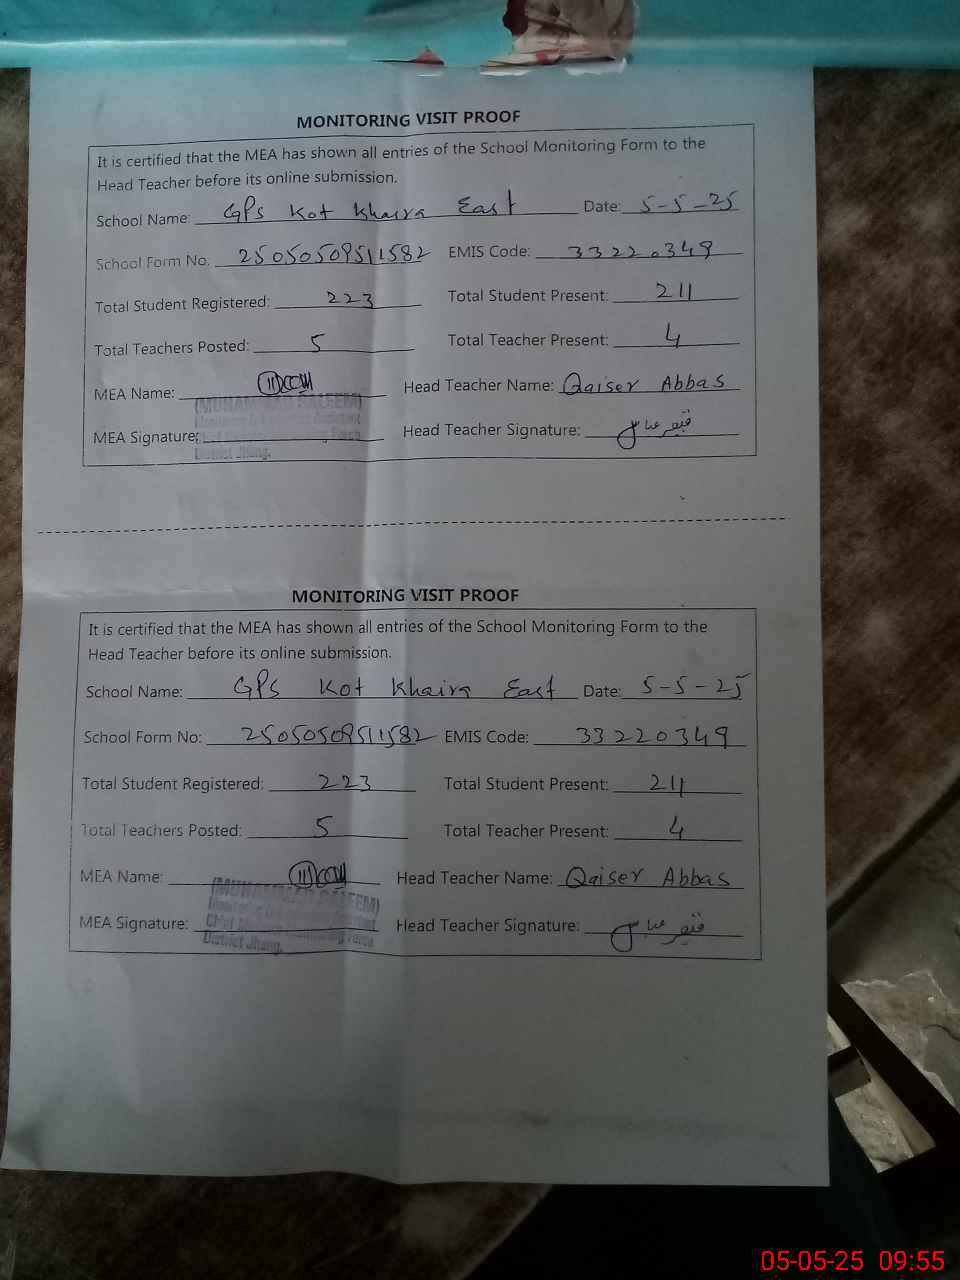 MONITORING VISIT PROOF
It is certified that the MEA has shown all entries of the School Monitoring Form to the
Head Teacher before its online submission.
School Name: GPS Kot Khaira East Date: 5-5-25
School Form No: 25050509511582 EMIS Code: 33220349
Total Student Registered: 223 Total Student Present: 211
Total Teachers Posted: 5 Total Teacher Present: 4
MEA Name: Head Teacher Name: Qaiser Abbas
(MUHAMMAD SALEEM)
MEA Signature: Head Teacher Signature:
District Jhang.
MONITORING VISIT PROOF
It is certified that the MEA has shown all entries of the School Monitoring Form to the
Head Teacher before its online submission.
School Name: GPS Kot Khaira East Date: 5-5-25
School Form No: 25050509511582 EMIS Code: 33220349
Total Student Registered: 223 Total Student Present: 211
Total Teachers Posted: 5 Total Teacher Present: 4
MEA Name: Head Teacher Name: Qaiser Abbas
(MUHAMMAD SALEEM)
MEA Signature: Head Teacher Signature:
District Jhang.
05-05-25 09:55